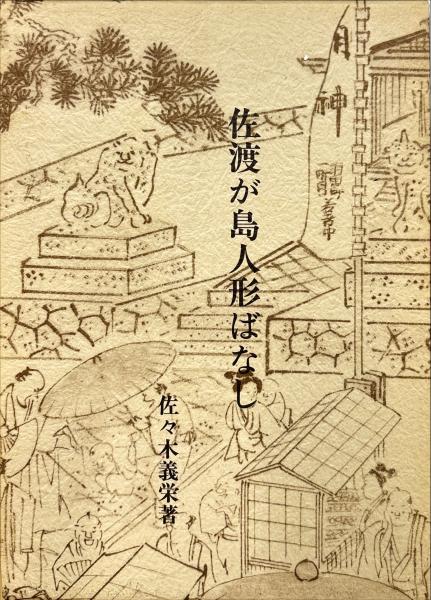 佐渡が島人形ばなし
佐々木義栄著
月神